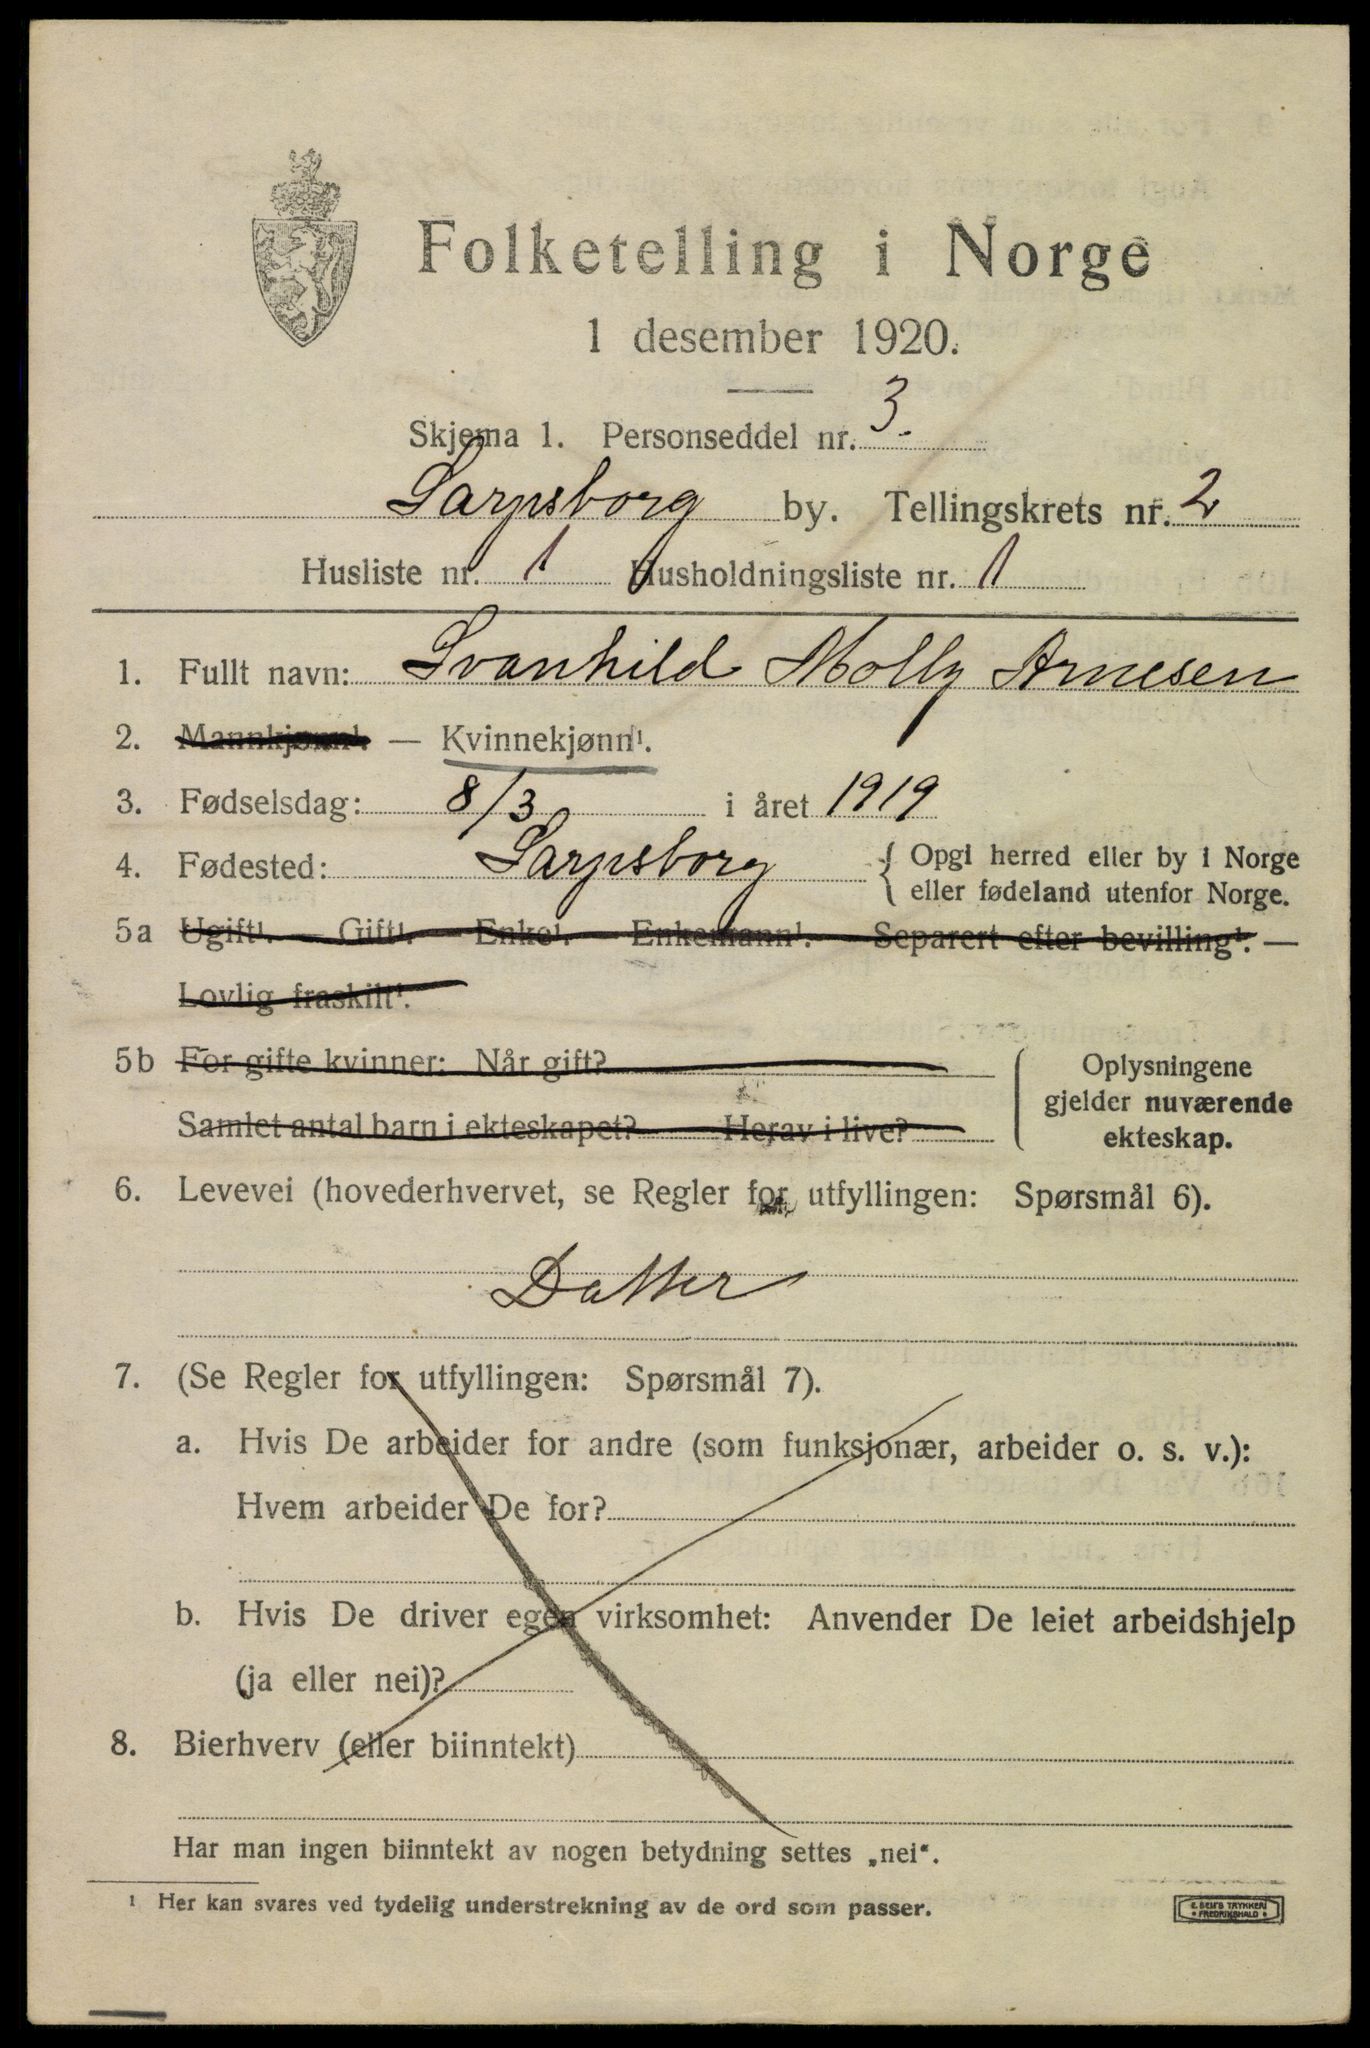 Folketelling i Norge
1 desember 1920.
Skjema 1. Personseddel nr. 3.
Sarpsborg by. Tellingskrets nr. 2
Husliste nr. 1 Husholdningsliste nr. 1
1. Fullt navn: Svanhild Molly Arnesen
2. Mannkjønn¹. — Kvinnekjønn¹.
3. Fødselsdag: 8/3 i året 1919
4. Fødested: Sarpsborg { Opgi herred eller by i Norge
eller fødeland utenfor Norge.
5a Ugift¹. — Gift¹. — Enke¹. — Enkemann¹. — Separert efter bevilling¹. —
Lovlig fraskilt¹.
5b For gifte kvinner: Når gift?
Samlet antal barn i ekteskapet? Herav i live?
Oplysningene
gjelder nuværende
ekteskap.
6. Levevei (hovederhvervet, se Regler for utfyllingen: Spørsmål 6).
Datter
7. (Se Regler for utfyllingen: Spørsmål 7).
a. Hvis De arbeider for andre (som funksjonær, arbeider o. s. v.):
Hvem arbeider De for?
b. Hvis De driver egen virksomhet: Anvender De leiet arbeidshjelp
(ja eller nei)?
8. Bierhverv (eller biinntekt)
Har man ingen biinntekt av nogen betydning settes „nei".
¹ Her kan svares ved tydelig understrekning av de ord som passer.
E. SEM'S TRYKKERI
FREDRIKSHALD